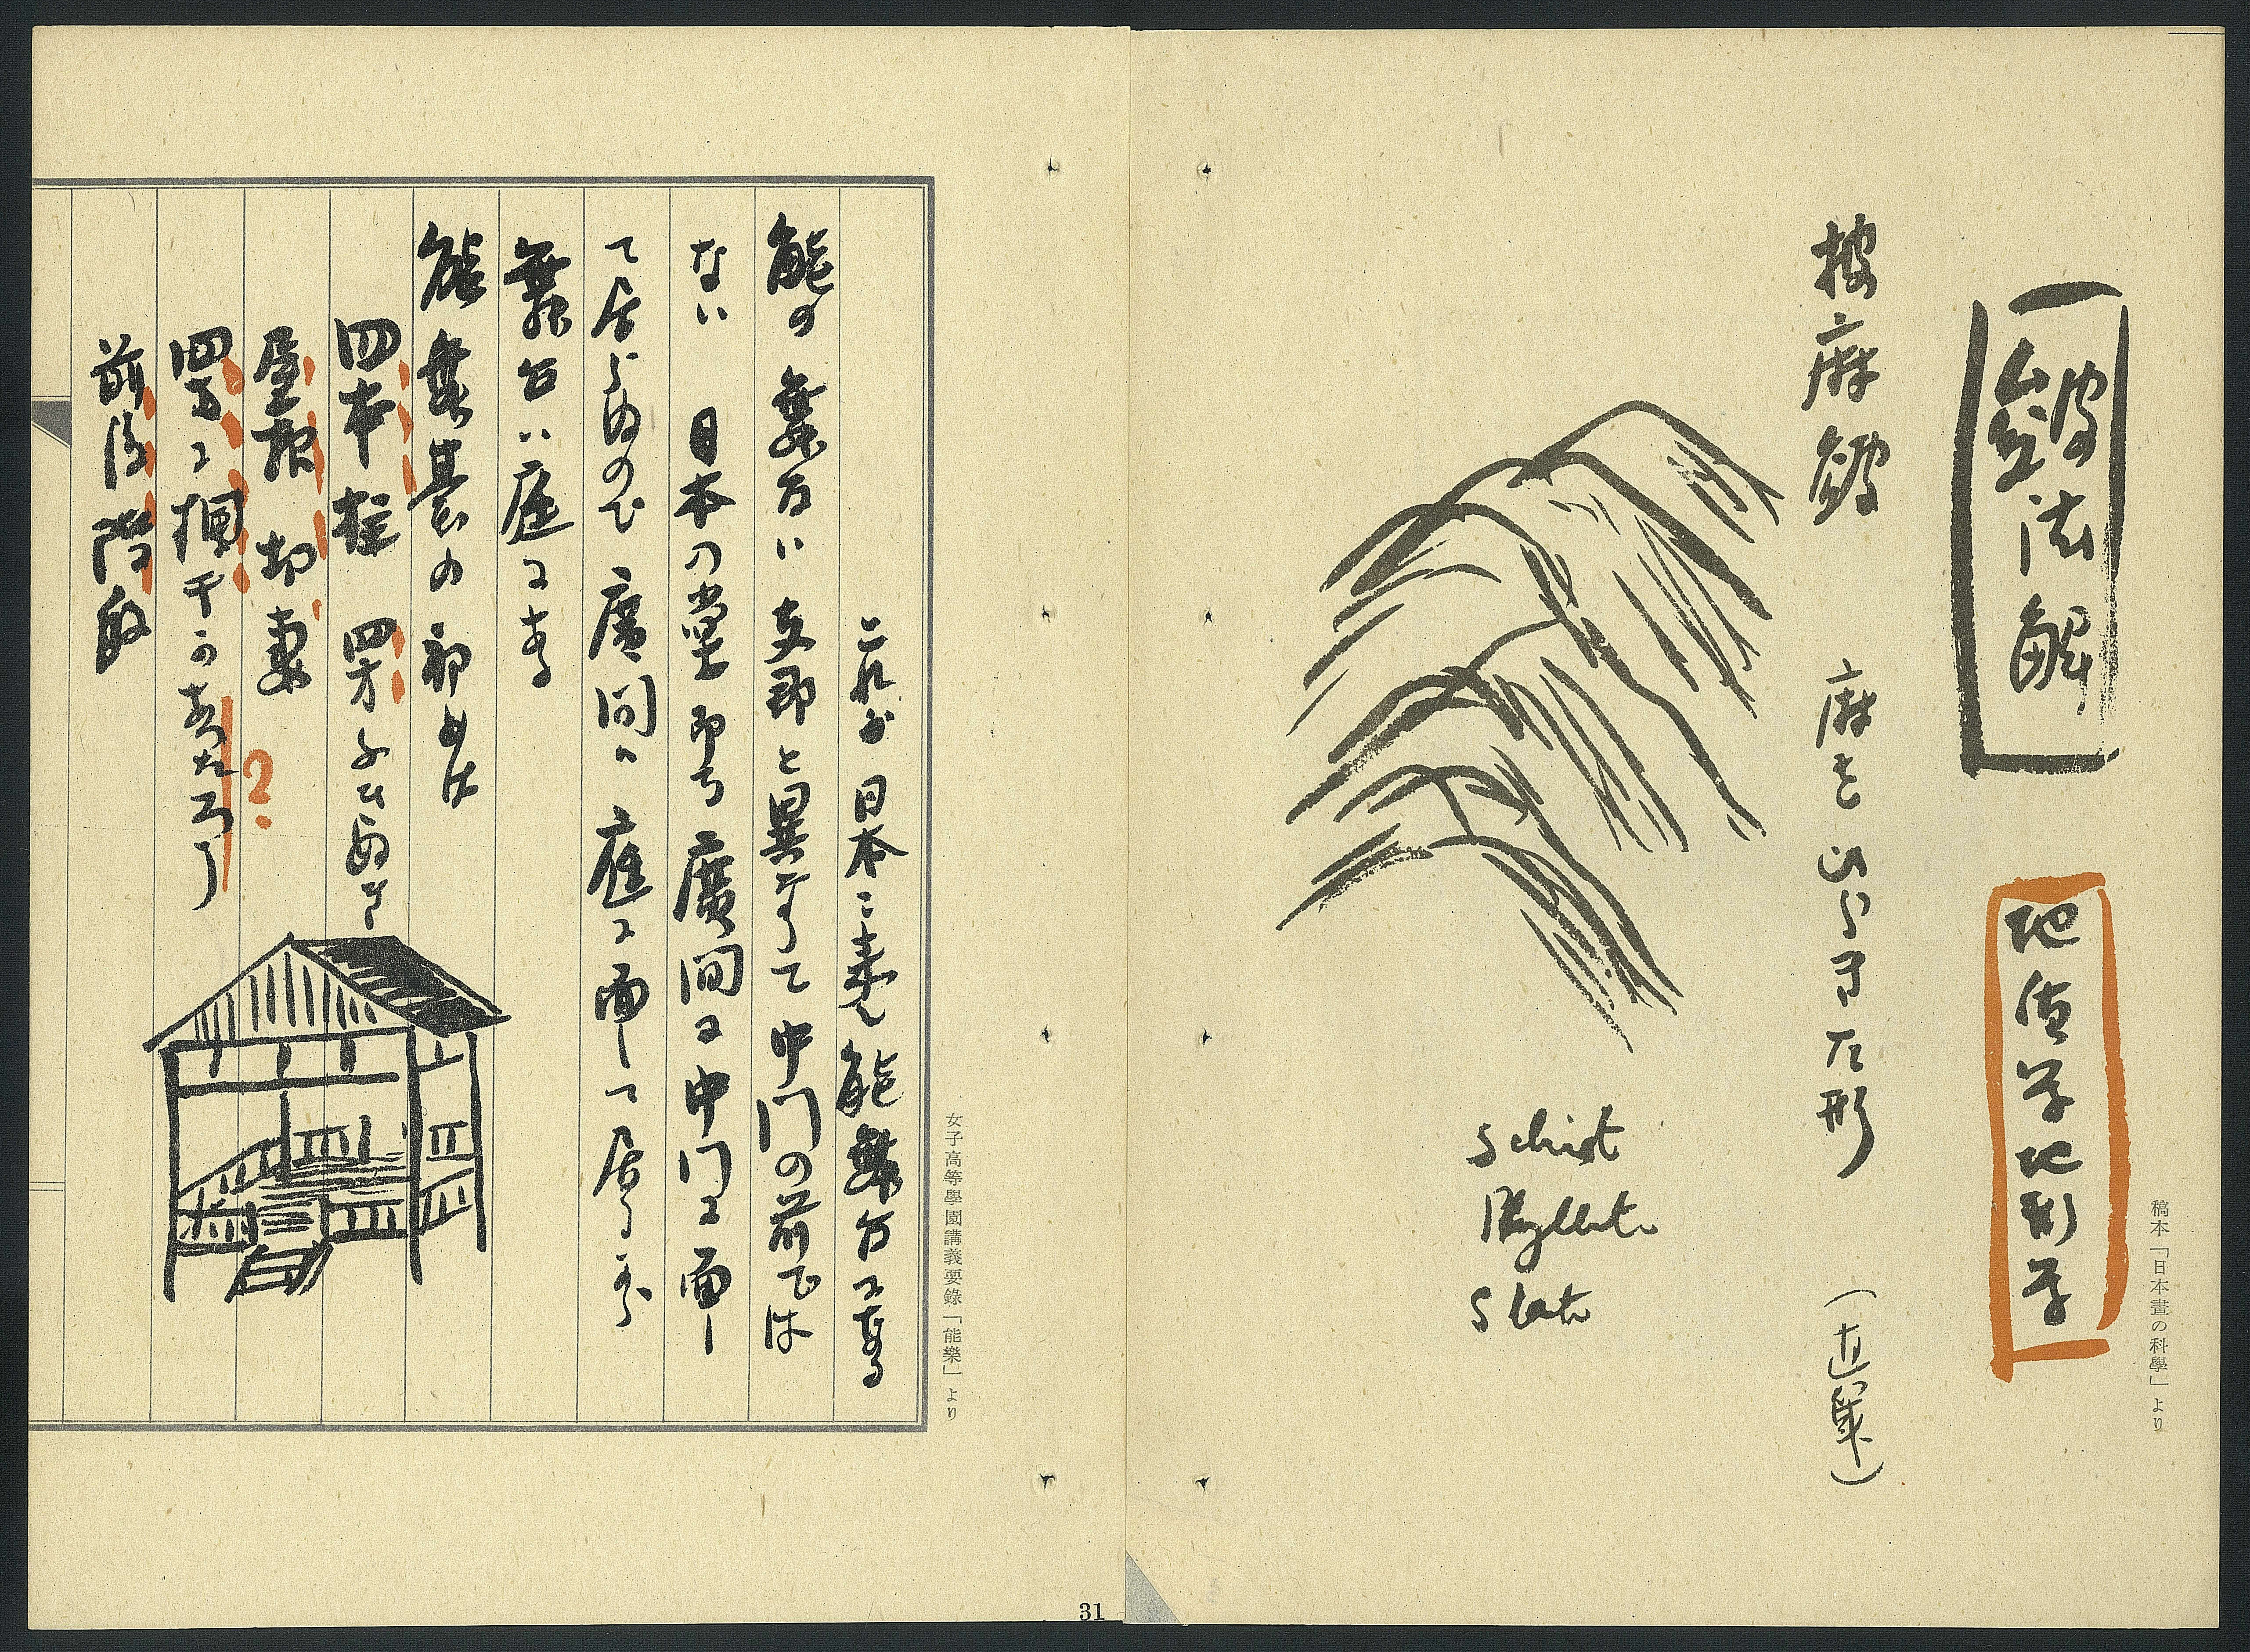 皴法解
地質学地形学
披麻皴　麻をひらきた形　(直皴)
Schist
Phyllite
Slate
稿本「日本畫の科學」より
女子高等學園講義要錄「能樂」より
これが日本に来て能舞台になる
能の舞台は支那と異なつて中門の前では
ない　日本の堂即ち廣間は中門に面し
て居らぬので廣間は庭に面して居るから
舞台は庭にある
能舞台の初めは
四本柱　四方
屋根　切妻
四方に欄干があつたろう
?
前後階段
31